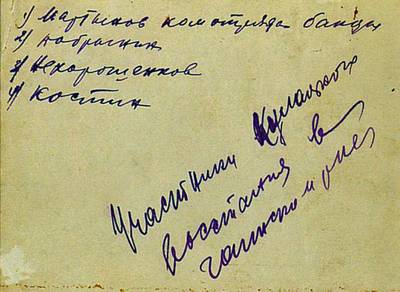 1) Мартынов комотряда банды
2) Добрынин
3) Нехорошенков
4) Костин
Участники Кулацкого
восстания в
районе